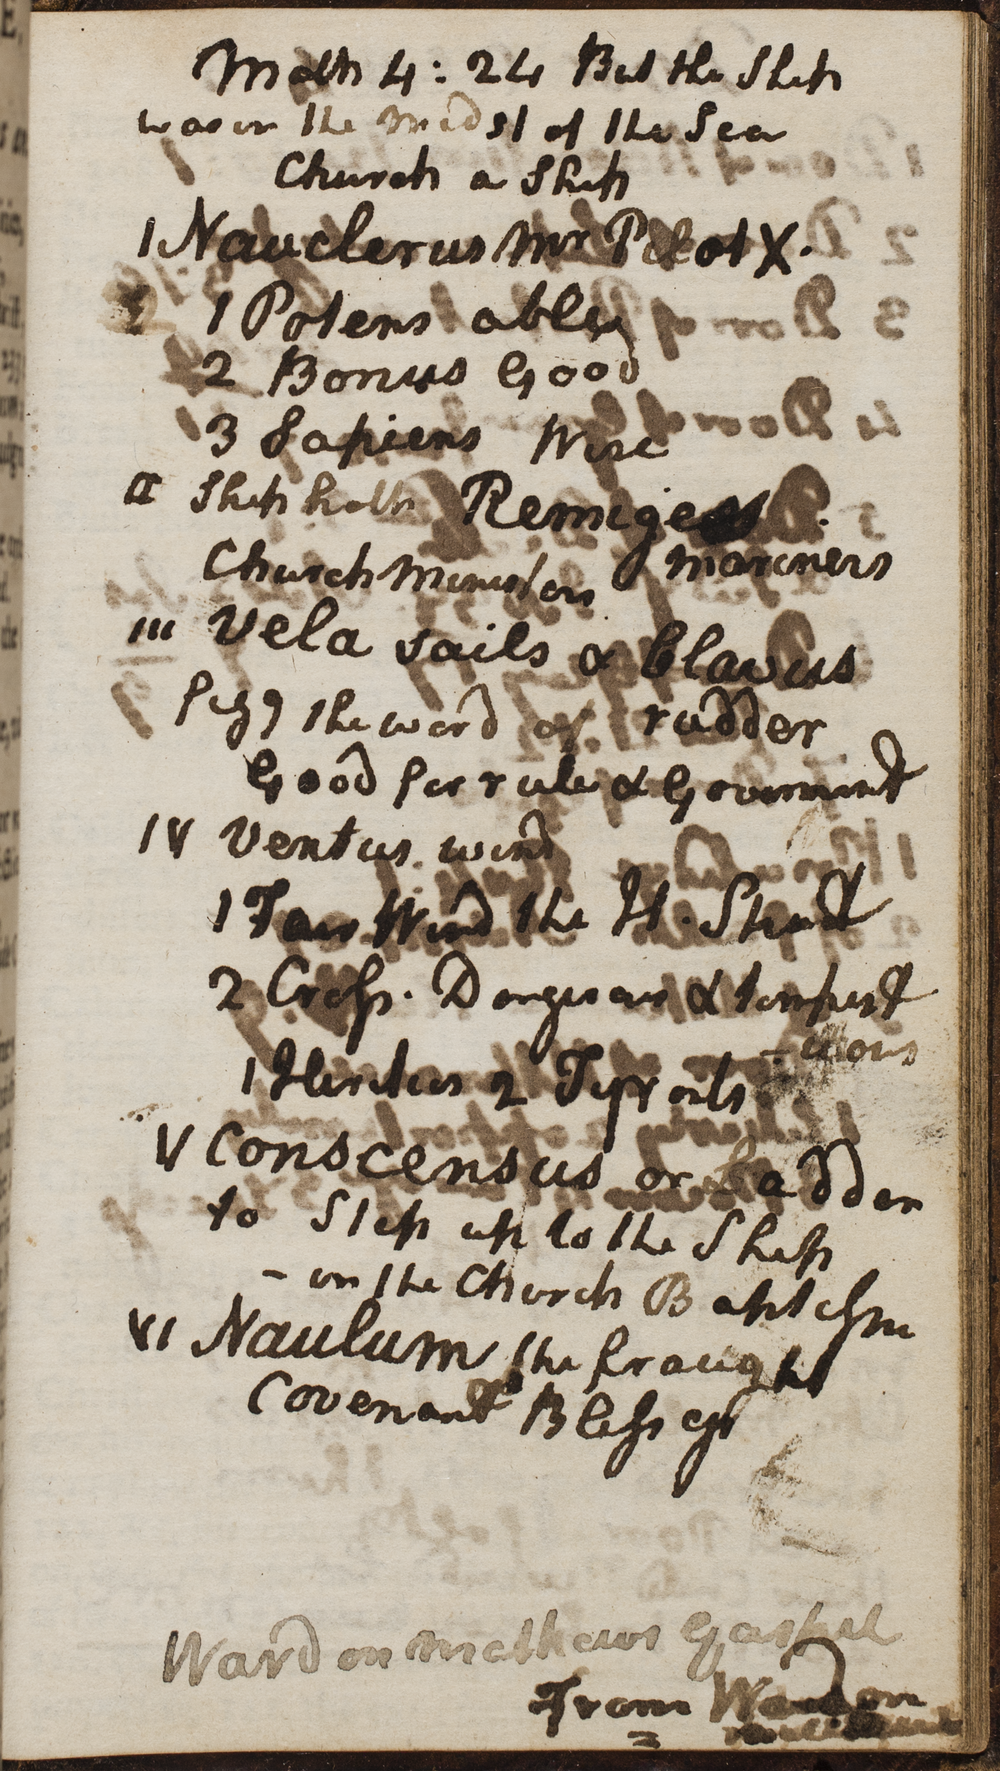 Math 4: 24 But the Ship
was in the midst of the Sea
Church a Ship
1 Nauclerus Mr Pilot X.
1 Potens able
2 Bonus Good
3 Sapiens Wise
II Ship hath Remiges
Church Ministers mariners
III Vela sails & Clavus
the word of rudder
Good for rule & Governmt
IV Ventus wind
1 Fair Wind the H. Spirit
2 Cross. Dangerous & tempest
-uous
1 Hereticks 2 Tyrants
V Conscensus or Ladder
to Step up to the Ship
- in the Church Baptism
VI Naulum the fraught
Covenant Blessgs
Ward on Mathews Gospel
From Ward on